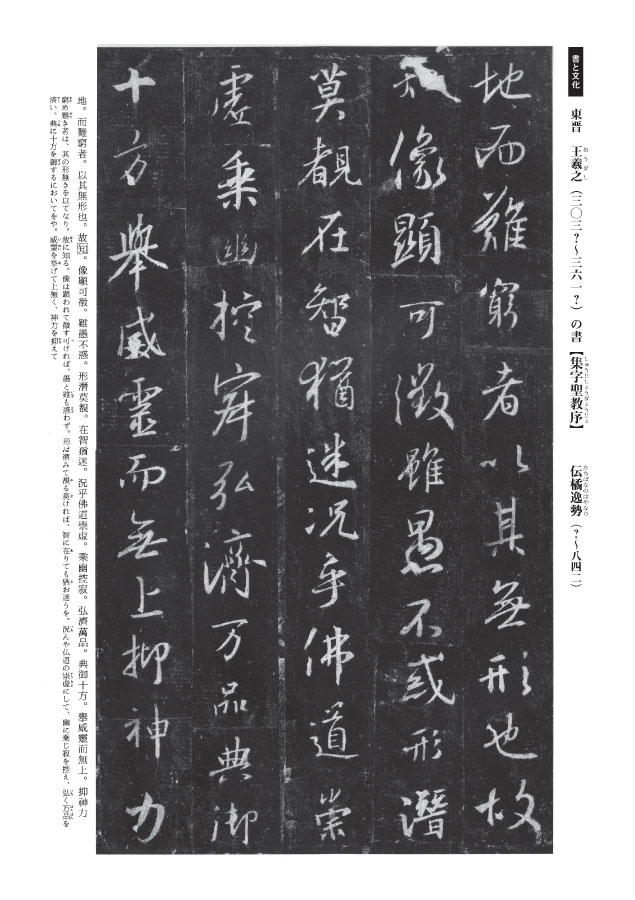 書と文化
東晋 王羲之(三〇三?〜三六一?)の書【集字聖教序】 伝橘逸勢(?〜八四二)
地而難窮者以其無形也故
知像顯可徴雖愚不惑形潛
莫覩在智猶迷况乎佛道崇
虚乗幽控寂弘濟万品典御
十方擧威靈而無上抑神力
地。而難窮者。以其無形也。故知。像顯可徴。雖愚不惑。形潛莫覩。在智猶迷。況乎佛道崇虚。乗幽控寂。弘濟萬品。典御十方。擧威靈而無上。抑神力
窮め難き者は、其の形無きを以てなり。故に知る。像は顕われて徴す可ければ、愚と雖も惑わず。形は潜みて覩る莫ければ、智に在りても猶お迷うを。況んや仏道の崇虚にして、幽に乗じ寂を控え、弘く万品を
済い、典に十方を御するにおいてをや。威霊を挙げて上無く、神力を抑えて